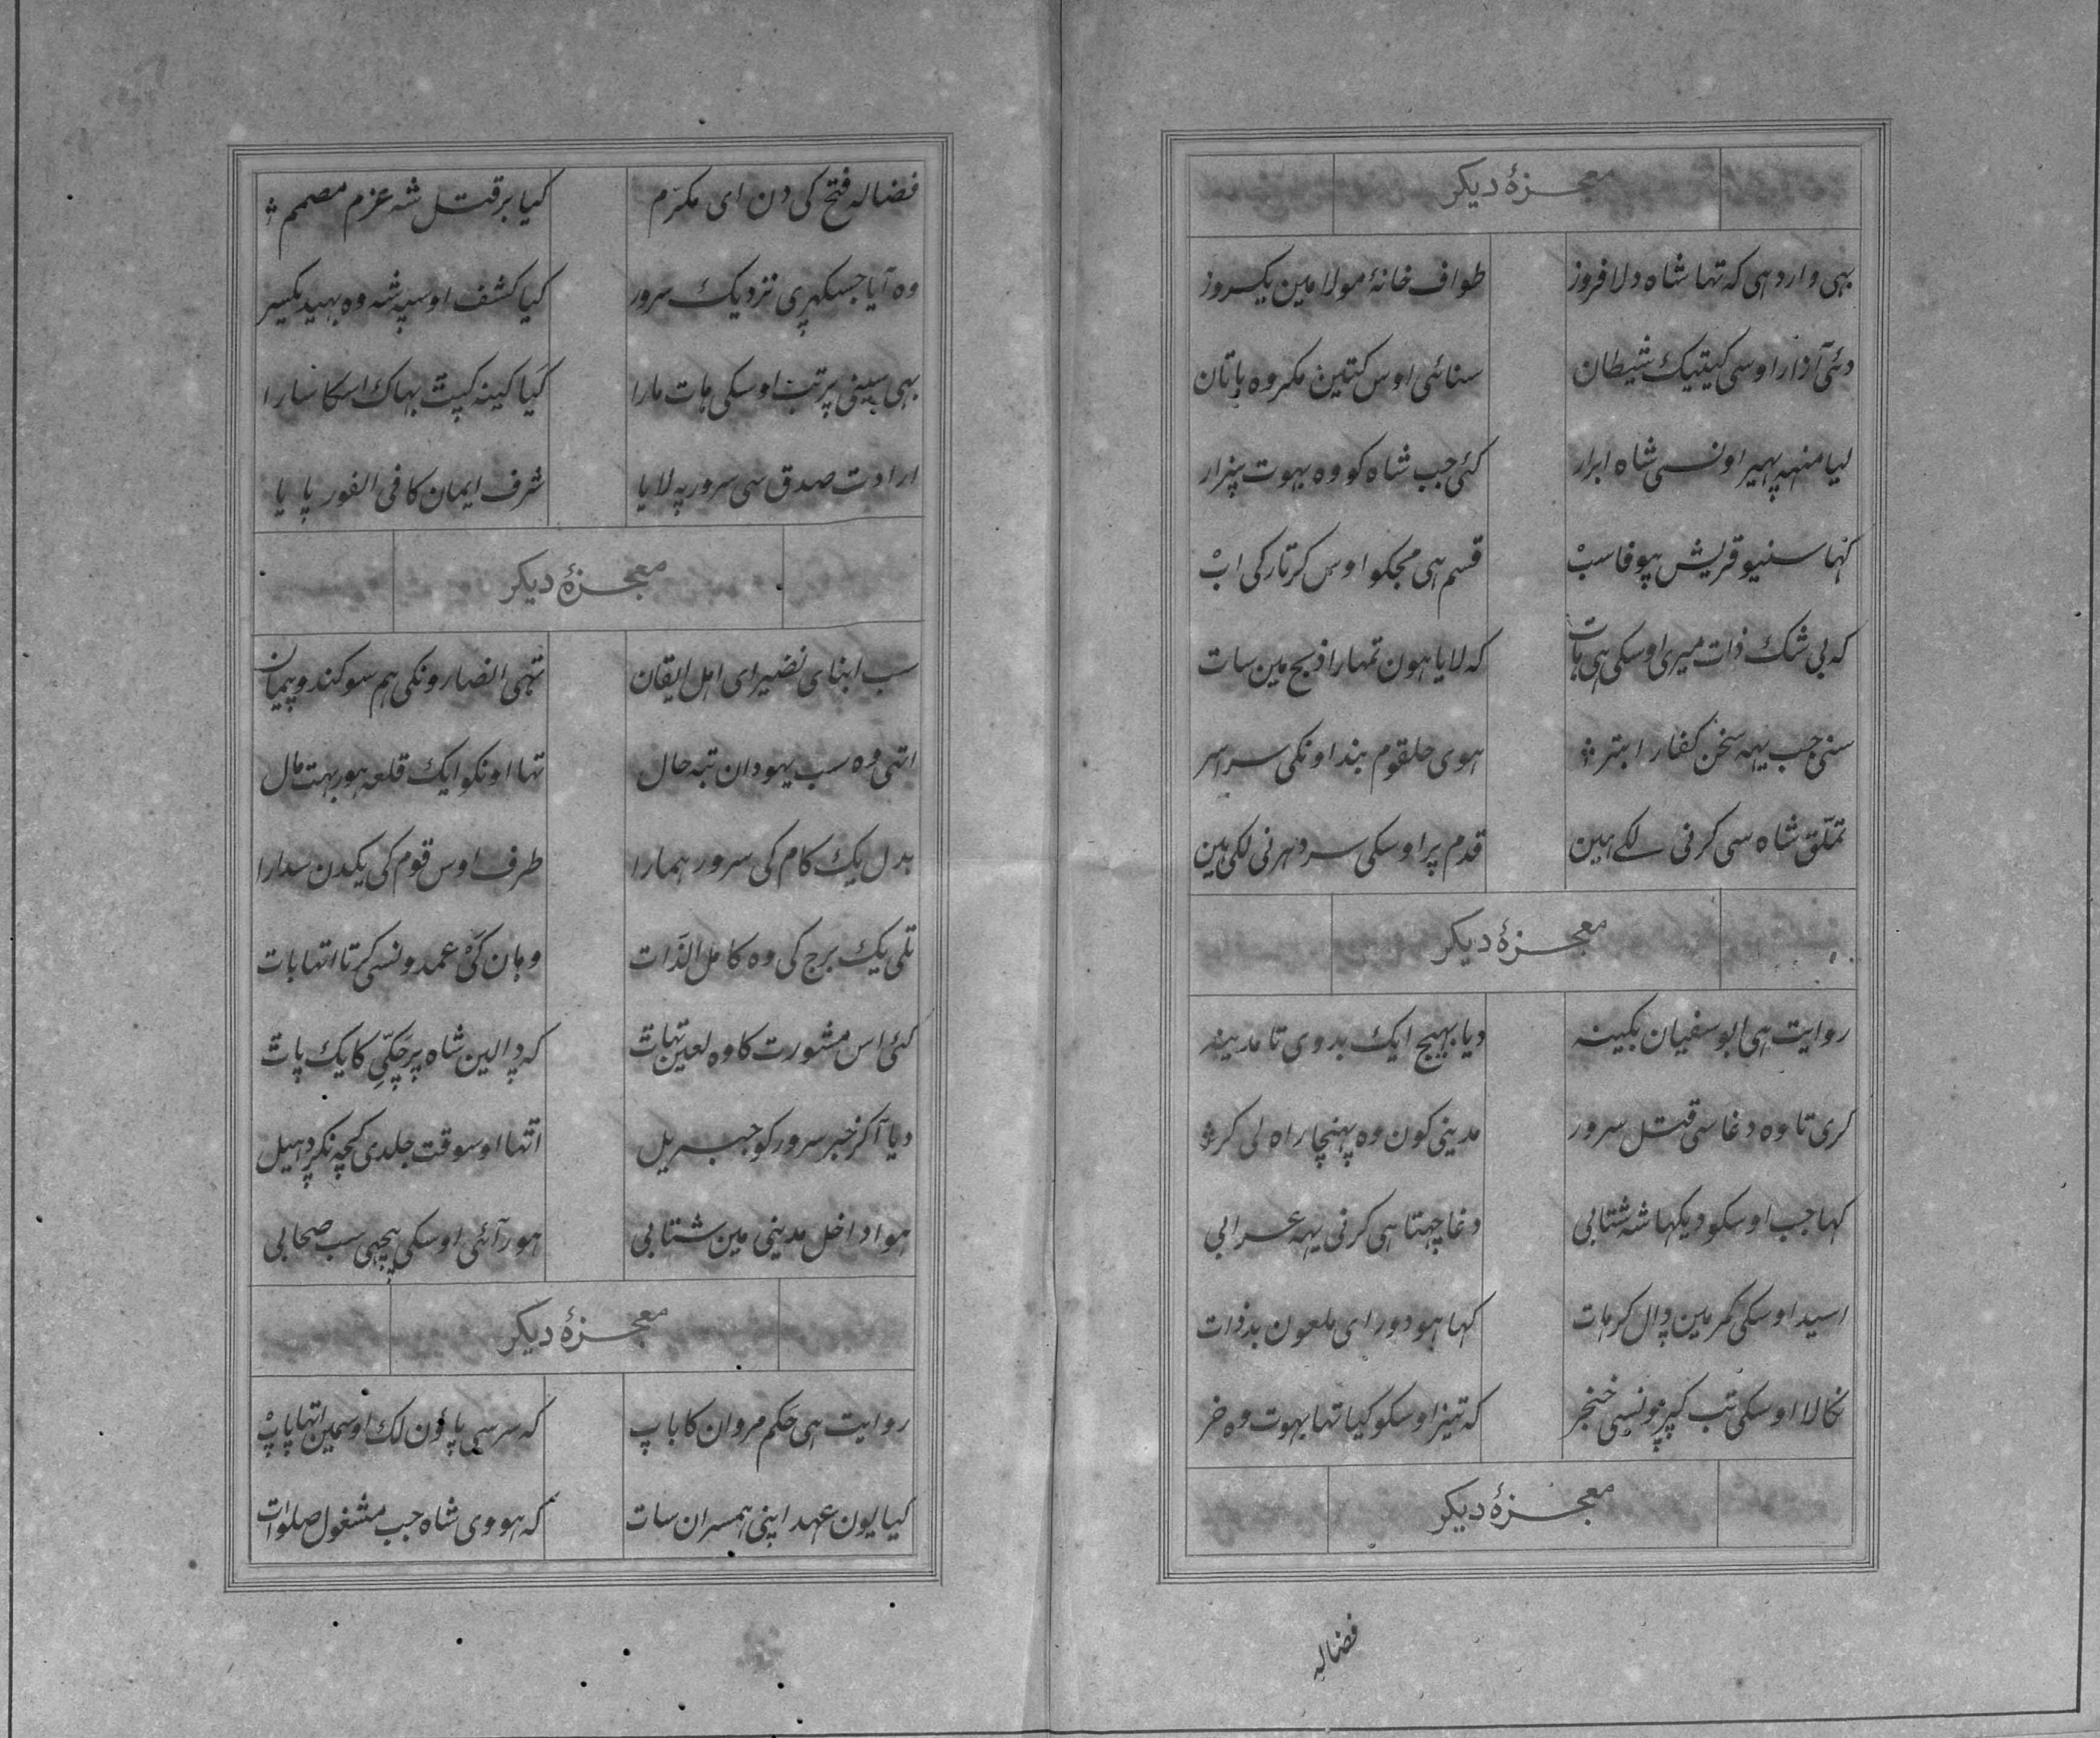 معجزۀ دیکر
بهی وارد هی که تها شاه دلافروز طواف خانۀ مولا مین یکروز
دئی آزار اوسی کیتیک شیطان سنائی اوس کتین مکروه باتان
لیا منهه پهیر اونسی شاه ابرار کئی جب شاه کو وه بهوت بیزار
کها سنیو قریش بیوفا سب قسم هی مجکو اوس کرتار کی اب
که بی شک ذات میری اوسکی هی هات که لایا هون تمهارا ذبح مین سات
سنی جب یهه سخن کفار ابتر هوی حلقوم بند اونکی سراسر
تملّق شاه سی کرنی لکی هین قدم پر اوسکی سر دهرنی لکی هین
معجزۀ دیکر
روایت هی ابو سفیان بکینه دیا بهیج ایک بدوی تا مدینه
کری تا وه دغا سی قتل سرور مدینی کون وه پهنچا راه لی کر
کها جب اوسکو دیکها شه شتابی دغا چهتا هی کرنی یهه عرابی
اسید اوسکی کمر مین ڈال کر هات کها هو دور ای ملعون بدذات
نکالا اوسکی تب کپڑونسی خنجر که تیز اوسکو کیا تها بهوت وه خر
معجزۀ دیکر
فضاله
فضاله فتح کی دن ای مکرّم کیا بر قتل شه عزم مصمم
وه آیا جسکهڑی نزدیک سرور کیا کشف اوسپه شه وه بهید یکسر
بهی سینی پر تب اوسکی هات مارا کیا کینه کپٹ بهاک اسکا سارا
ارادت صدق سی سرور په لایا شرف ایمان کا فی الفور پایا
معجزۀ دیکر
سب ابنای نضیر ای اهل ایقان تهی انصارونکی هم سوکند و پیمان
اتهی وه سب یهودان تبه حال تها اونکو ایک قلعه هور بهت مال
بدل یک کام کی سرور همارا طرف اوس قوم کی یکدن سدارا
تلی یک برج کی وه کامل الذّات وهان کی عمدونسی کرتا اتها بات
کئی اس مشورت کا وه لعین تهات که ڈالین شاه پر چکّی کا یک پات
دیا آکر خبر سرور کو جبریل اتها اوسوقت جلدی کچه نکر ڈهیل
هوا داخل مدینی مین شتابی هور آئی اوسکی پیچهی سب صحابی
معجزۀ دیکر
روایت هی حکم مروان کا باپ که سر سی پاؤن لک اوسمین اتها پاپ
کیا یون عهد اپنی همسران سات که هووی شاه جب مشغول صلوات